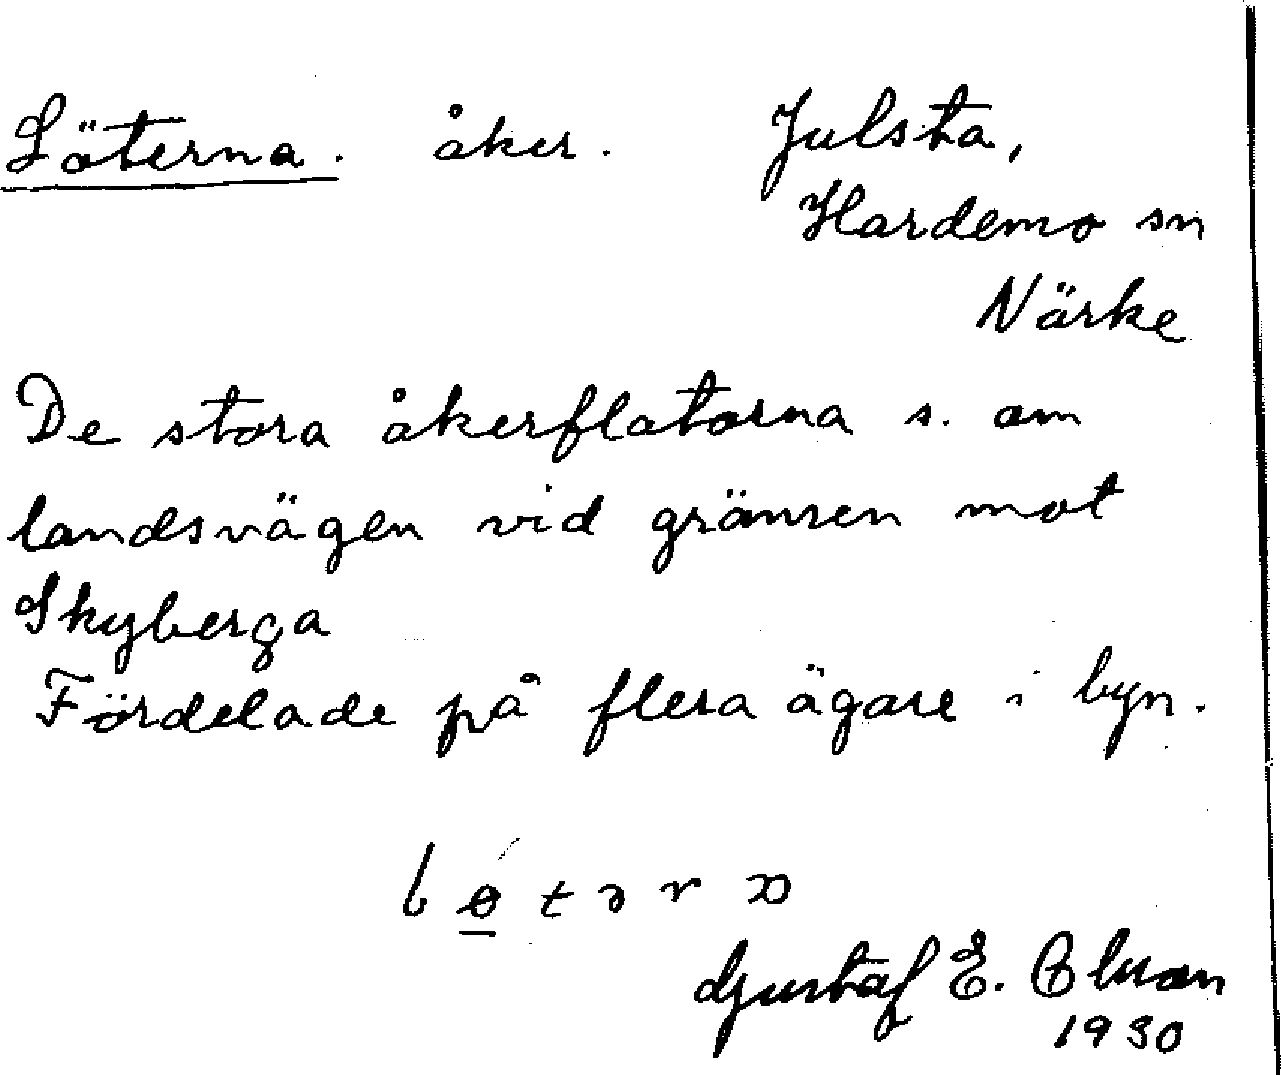 Löterna. åker. Julsta,
Hardemo sn
Närke
De stora åkerflatorna s. om
landsvägen vid gränsen mot
Skyberga
Fördelade på flera ägare i byn.
Gustaf E. Olsson
1930